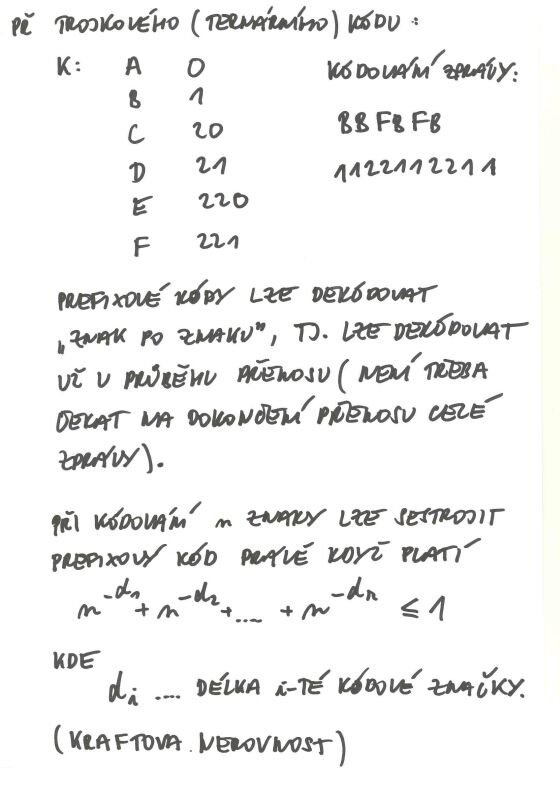 PŘ TROJKOVÉHO (TERNÁRNÍHO) KÓDU :
K: A 0 KÓDOVÁNÍ ZPRÁVY:
B 1
C 20 BBFBFB
D 21 1122112211
E 220
F 221
PREFIXOVÉ KÓDY LZE DEKÓDOVAT
„ZNAK PO ZNAKU", TJ. LZE DEKÓDOVAT
UŽ V PRŮBĚHU PŘENOSU (NENÍ TŘEBA
ČEKAT NA DOKONČENÍ PŘENOSU CELÉ
ZPRÁVY).
PŘI KÓDOVÁNÍ n ZNAKY LZE SESTROJIT
PREFIXOVÝ KÓD PRÁVĚ KDYŽ PLATÍ
n^{-d_1} + n^{-d_2} + .... + n^{-d_n} ≤ 1
KDE
d_i .... DÉLKA i-TÉ KÓDOVÉ ZNAČKY.
(KRAFTOVA NEROVNOST)